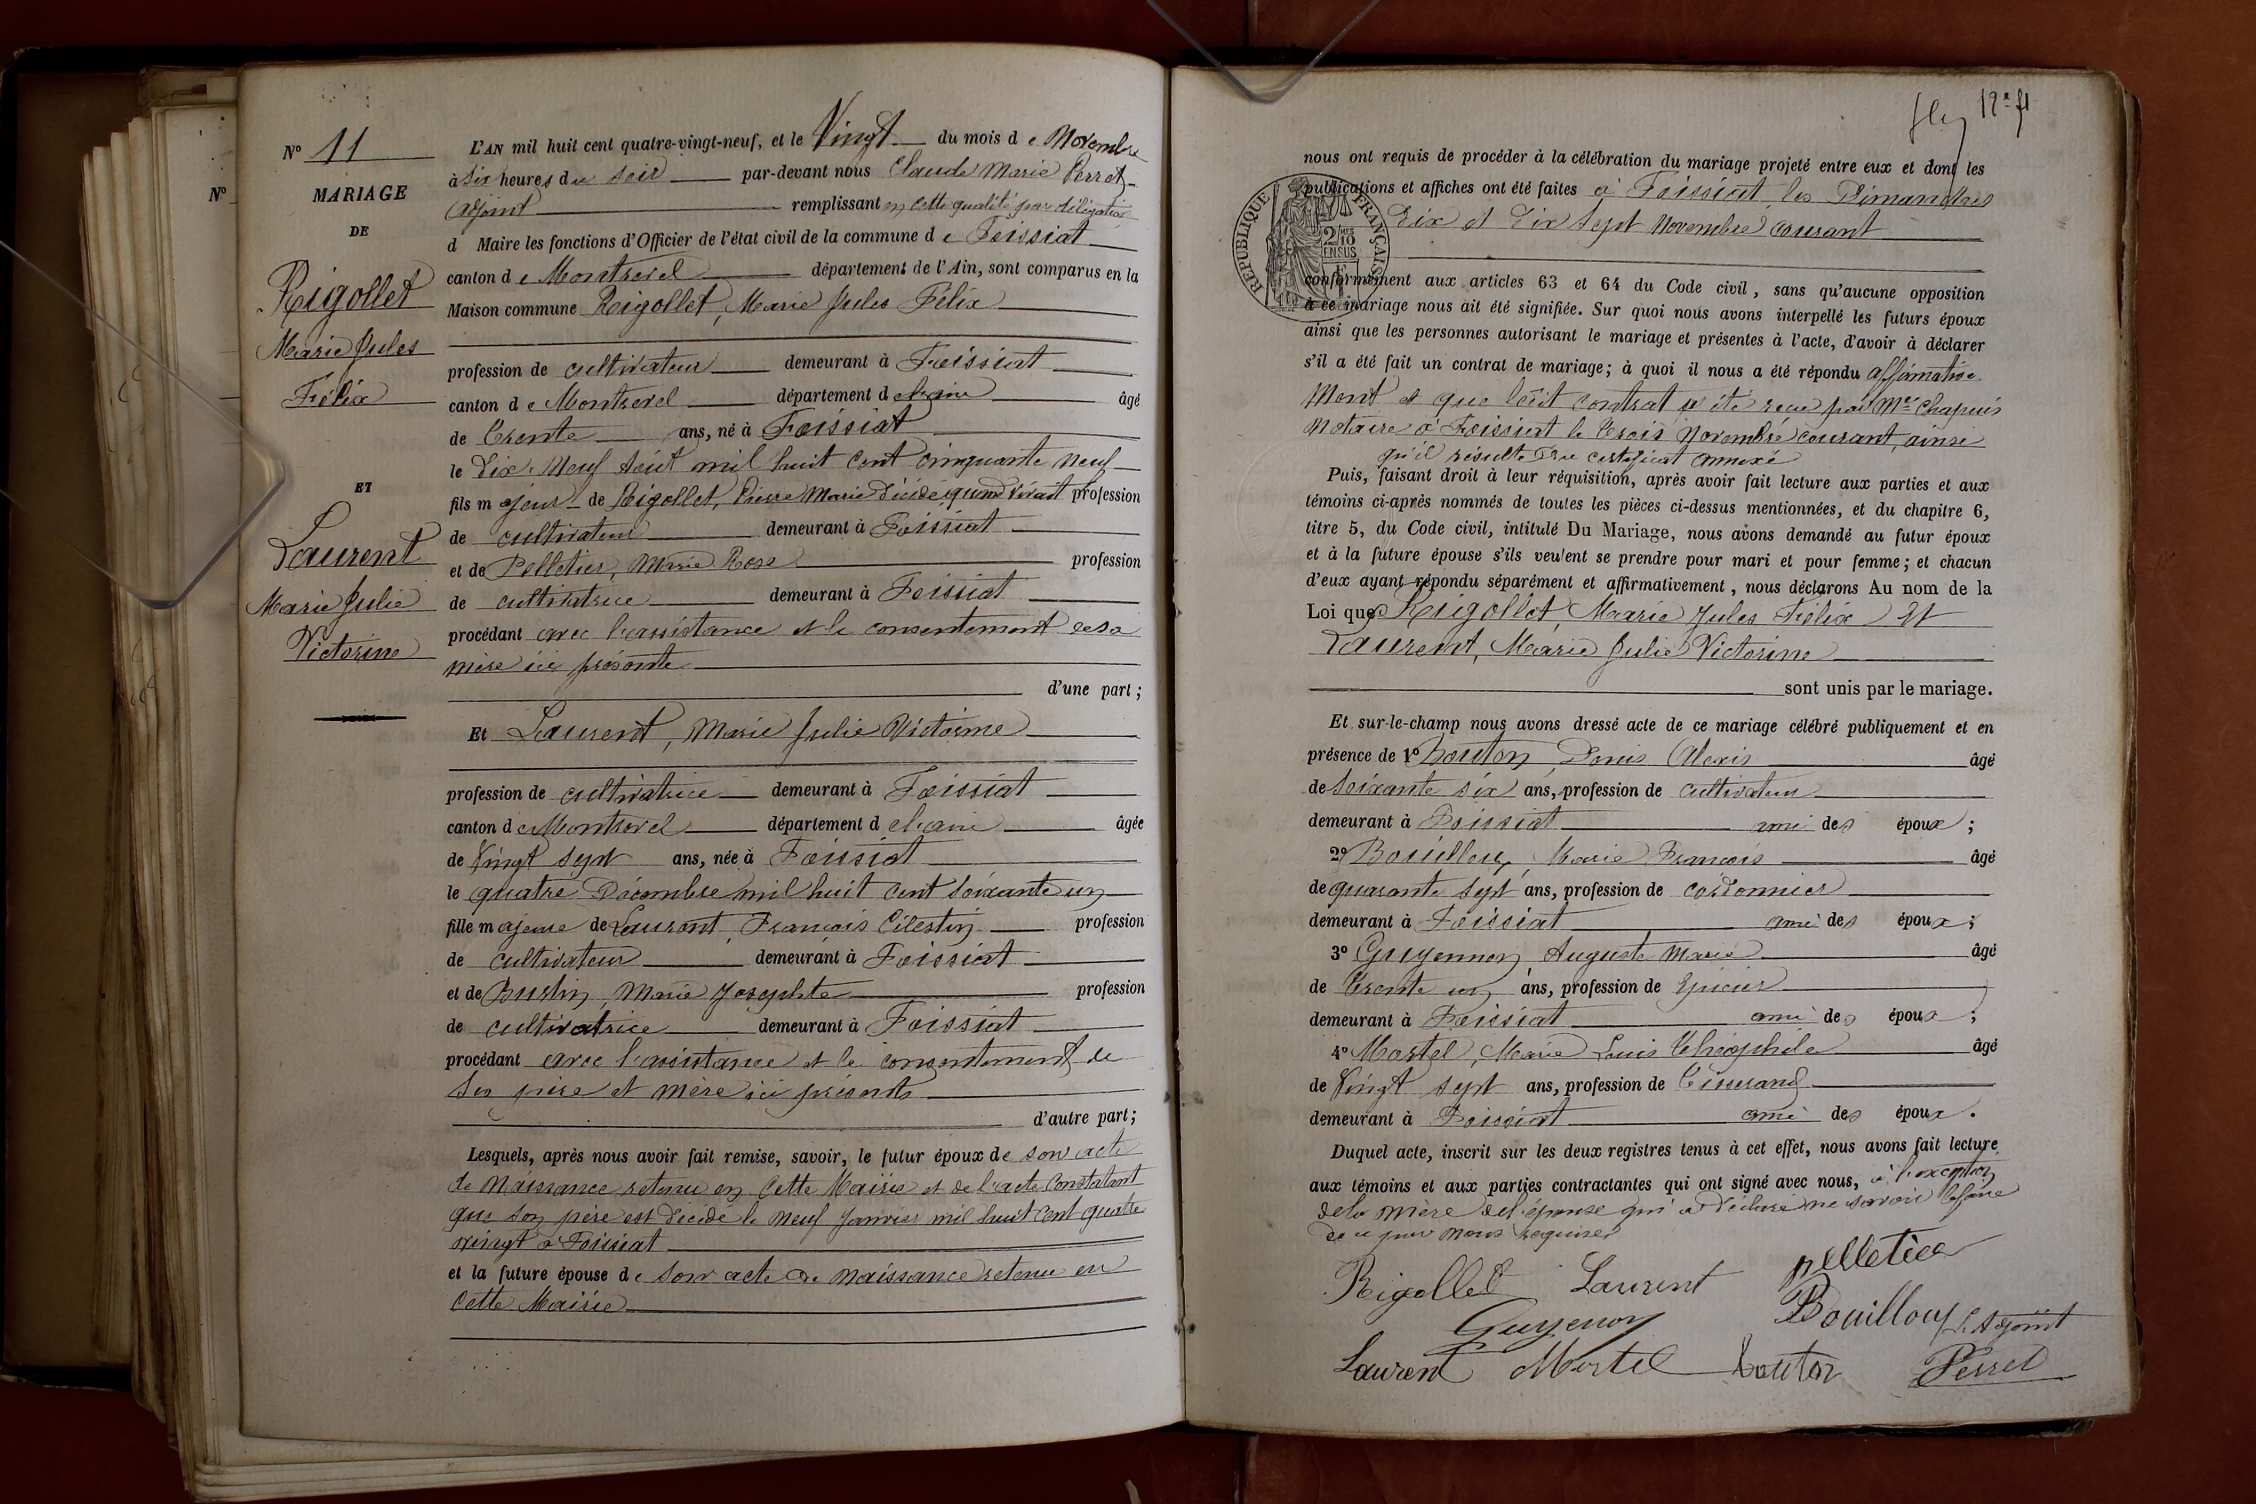 Nº 11
MARIAGE
DE
Rigollet
Marie Jules
Félix
ET
Laurent
Marie Julie
Victorine
Nº
L'AN mil huit cent quatre-vingt-neuf, et le Vingt du mois de Novembre
à Six heures du soir par-devant nous Claude Marie Perret
adjoint remplissant en cette qualité par délégation
d Maire les fonctions d'Officier de l'état civil de la commune de Foissiat
canton de Montrevel département de l'Ain, sont comparus en la
Maison commune Rigollet, Marie Jules Félix
profession de cultivateur demeurant à Foissiat
canton de Montrevel département de l'ain âgé
de trente ans, né à Foissiat
le Dix Neuf Août mil huit cent cinquante neuf
fils majeur de Rigollet, Pierre Marie Décédé quand vivait profession
de cultivateur demeurant à Foissiat
et de Pelletier, Marie Rose profession
de cultivatrice demeurant à Foissiat
procédant avec l'assistance et le consentement de sa
mère ici présente
d'une part;
Et Laurent, Marie Julie Victorine
profession de cultivatrice demeurant à Foissiat
canton de Montrevel département de l'ain âgée
de Vingt sept ans, née à Foissiat
le quatre Décembre mil huit cent soixante un
fille majeure de Laurent, François Célestin profession
de cultivateur demeurant à Foissiat
et de Burtin, Marie Josephte profession
de cultivatrice demeurant à Foissiat
procédant avec l'assistance et le consentement de
ses père et mère ici présents
d'autre part;
Lesquels, après nous avoir fait remise, savoir, le futur époux de son acte
de Naissance retenu en cette Mairie et de l'acte constatant
que son père est décédé le neuf Janvier mil huit cent quatre
vingt à Foissiat
et la future épouse de son acte de Naissance retenu en
cette Mairie
12e f
nous ont requis de procéder à la célébration du mariage projeté entre eux et dont les
publications et affiches ont été faites à Foissiat les Dimanches
Dix et Dix Sept Novembre courant
RÉPUBLIQUE FRANÇAISE
2/10 EN SUS
conformément aux articles 63 et 64 du Code civil, sans qu'aucune opposition
à ce mariage nous ait été signifiée. Sur quoi nous avons interpellé les futurs époux
ainsi que les personnes autorisant le mariage et présentes à l'acte, d'avoir à déclarer
s'il a été fait un contrat de mariage; à quoi il nous a été répondu affirmative
ment et que ledit contrat a été reçu par Me Chapuis
Notaire à Foissiat le trois Novembre courant, ainsi
qu'il résulte du certificat annexé
Puis, faisant droit à leur réquisition, après avoir fait lecture aux parties et aux
témoins ci-après nommés de toutes les pièces ci-dessus mentionnées, et du chapitre 6,
titre 5, du Code civil, intitulé Du Mariage, nous avons demandé au futur époux
et à la future épouse s'ils veulent se prendre pour mari et pour femme; et chacun
d'eux ayant répondu séparément et affirmativement, nous déclarons Au nom de la
Loi que Rigollet, Marie Jules Félix Et
Laurent, Marie Julie Victorine
sont unis par le mariage.
Et sur-le-champ nous avons dressé acte de ce mariage célébré publiquement et en
présence de 1º Bouton, Denis Alexis âgé
de soixante six ans, profession de cultivateur
demeurant à Foissiat ami des époux;
2º Bouilloux, Marie François âgé
de quarante sept ans, profession de cordonnier
demeurant à Foissiat ami des époux;
3º Guyennon Auguste Marie âgé
de trente un ans, profession de Epicier
demeurant à Foissiat ami des époux;
4º Mortel, Marie Louis Théophile âgé
de Vingt sept ans, profession de tisserand
demeurant à Foissiat ami des époux.
Duquel acte, inscrit sur les deux registres tenus à cet effet, nous avons fait lecture
aux témoins et aux parties contractantes qui ont signé avec nous, à l'exception
de la mère de l'épouse qui a déclaré ne savoir le faire
de ce par nous requise
Rigollet Laurent pelletier
Guyenon Bouilloux L'Adjoint
Laurent Mortel Bouton Perret